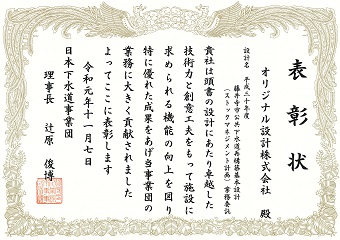 表彰状
オリジナル設計株式会社 殿
設計名 平成三十年度
藤井寺市公共下水道再構築基本設計
(ストックマネジメント計画)業務委託
貴社は頭書の設計にあたり卓越した
技術力と創意工夫をもって施設に
求められる機能の向上を図り
特に優れた成果をあげ当事業団の
業務に大きく貢献されました
よってここに表彰します
令和元年十一月七日
日本下水道事業団
理事長 辻原 俊博